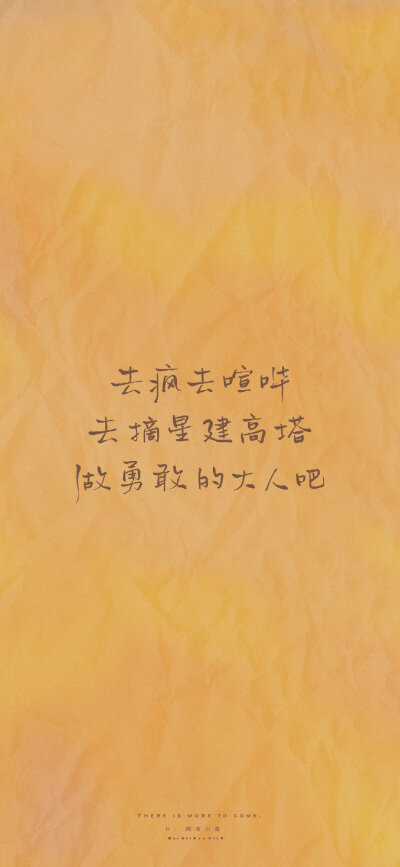 去疯去喧哗
去摘星建高塔
做勇敢的大人吧
THERE IS MORE TO COME.